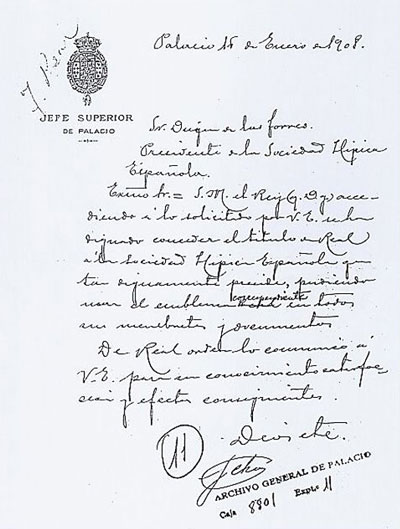 Palacio 15 de Enero de 1908.
JEFE SUPERIOR
DE PALACIO
Sr. Duque de las Torres.
Presidente de la Sociedad Hipica
Española.
Excmo Sr = S. M. el Rey (q. D. g.) acce-
diendo á lo solicitado por V. E. se ha
dignado conceder el titulo de Real
á la Sociedad Hipica Española que
tan dignamente preside, pudiendo
usar el emblema correspondiente en todos
sus membretes y documentos
De Real orden lo comunico á
V. E. para su conocimiento satisfac-
cion y efectos consiguientes.
Dios etc.
11
ARCHIVO GENERAL DE PALACIO
Caja 8801 Expte 11